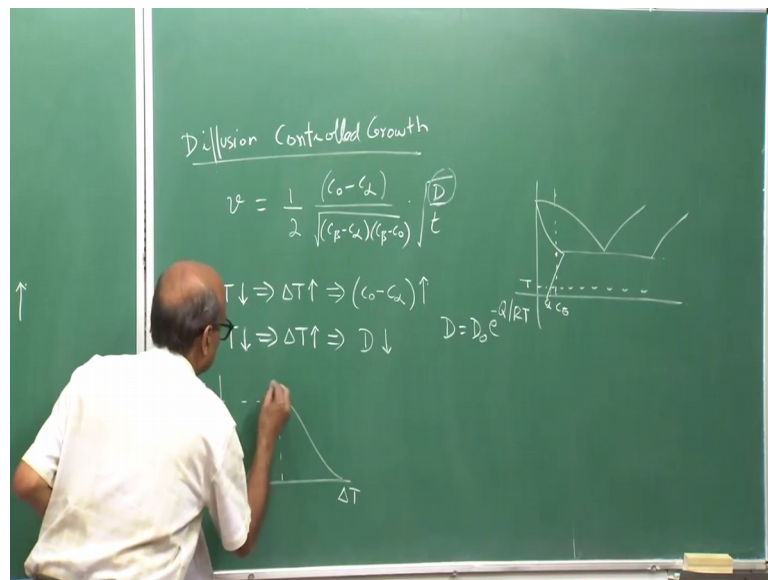 Diffusion Controlled Growth
v = 1/2 (C₀-Cα)/√((Cβ-Cα)(Cβ-C₀)) · √(D/t)
↑
T↓ ⇒ ΔT↑ ⇒ (C₀-Cα)↑
T↓ ⇒ ΔT↑ ⇒ D↓
D = D₀e^-Q/RT
T
C₀
ΔT